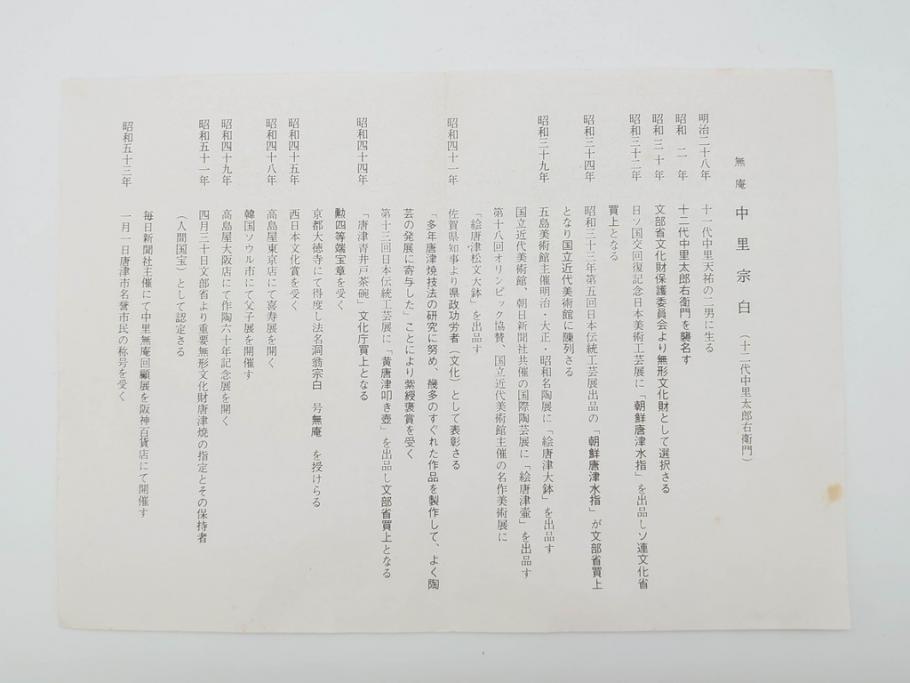 無庵 中里宗白 (十二代中里太郎右衛門)
明治二十八年 十一代中里天祐の二男に生る
昭和二年 十二代中里太郎右衛門を襲名す
昭和三十年 文部省文化財保護委員会より無形文化財として選択さる
昭和三十二年 日ソ国交回復記念日本美術工芸展に「朝鮮唐津水指」を出品しソ連文化省
買上となる
昭和三十四年 昭和三十三年第五回日本伝統工芸展出品の「朝鮮唐津水指」が文部省買上
となり国立近代美術館に陳列さる
昭和三十九年 五島美術館主催明治・大正・昭和名陶展に「絵唐津大鉢」を出品す
国立近代美術館、朝日新聞社共催の国際陶芸展に「絵唐津壷」を出品す
第十八回オリンピック協賛、国立近代美術館主催の名作美術展に
「絵唐津松文大鉢」を出品す
昭和四十一年 佐賀県知事より県政功労者(文化)として表彰さる
「多年唐津焼技法の研究に努め、幾多のすぐれた作品を製作して、よく陶
芸の発展に寄与した」ことにより紫綬褒賞を受く
第十三回日本伝統工芸展に「黄唐津叩き壺」を出品し文部省買上となる
昭和四十四年 「唐津青井戸茶碗」文化庁買上となる
勲四等瑞宝章を受く
京都大徳寺にて得度し法名洞翁宗白 号無庵 を授けらる
昭和四十五年 西日本文化賞を受く
昭和四十八年 高島屋東京店にて喜寿展を開く
韓国ソウル市にて父子展を開催す
昭和四十九年 高島屋大阪店にて作陶六十年記念展を開く
昭和五十一年 四月三十日文部省より重要無形文化財唐津焼の指定とその保持者
(人間国宝)として認定さる
毎日新聞社主催にて中里無庵回顧展を阪神百貨店にて開催す
昭和五十三年 一月一日唐津市名誉市民の称号を受く